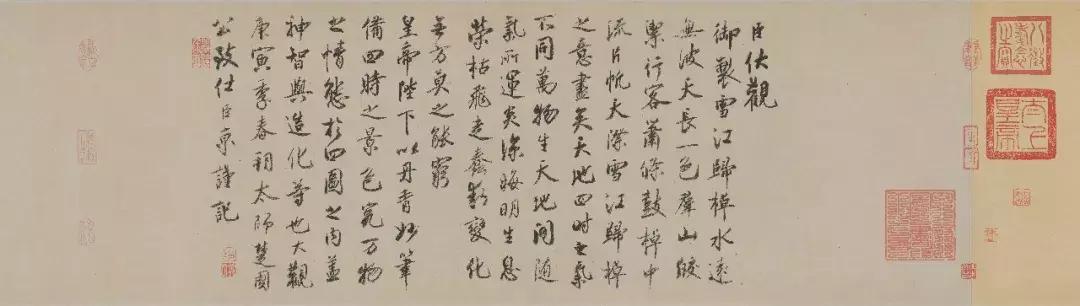 八徵耄念之寶
太上皇帝
臣伏觀
御製雪江歸棹水遠
無波天長一色羣山皎
潔行客蕭條鼓棹中
流片帆天際雪江歸棹
之意盡矣天地四時之氣
不同萬物生天地間隨
氣所運炎涼晦明生息
榮枯飛走蠢動變化
無方莫之能窮
皇帝陛下以丹青妙筆
備四時之景色究萬物
之情態於四圖之内蓋
神智與造化等也大觀
庚寅季春朔太師楚國
公致仕臣京謹記